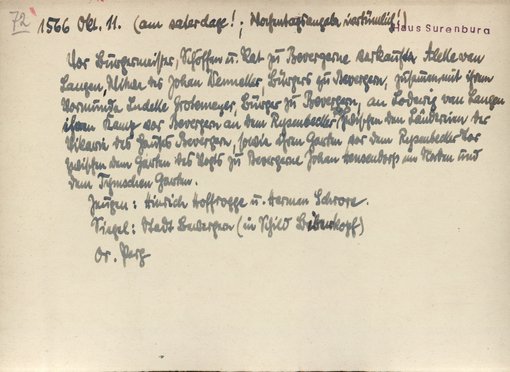 72
1566 Okt. 11. (am saterdage!; Wochentagsangabe irrtümlich!)
Haus Surenburg
Vor Bürgermeister, Schöffen u. Rat zu Bevergerne verkauft Aleke van
Langen, Witwe des Johan Wennekker, Bürgers zu Bevergern, zusammen mit ihrem
Vormunde Ludeke Grotemeyer, Bürger zu Bevergern, an Lodewig van Langen
ihren Kamp vor Bevergern an dem Rysenbecker zwischen den Ländereien der
Vikarie des Hauses Bevergern, sowie ihren Garten vor dem Rysenbecker Tor
zwischen dem Garten des Vogts zu Bevergerne Johan im Norden und
dem Garten.
Zeugen: Hinrich Hoffrogge u. Hermen Schroer.
Siegel: Stadt Bevergern (im Schild Biberkopf)
Or. Perg